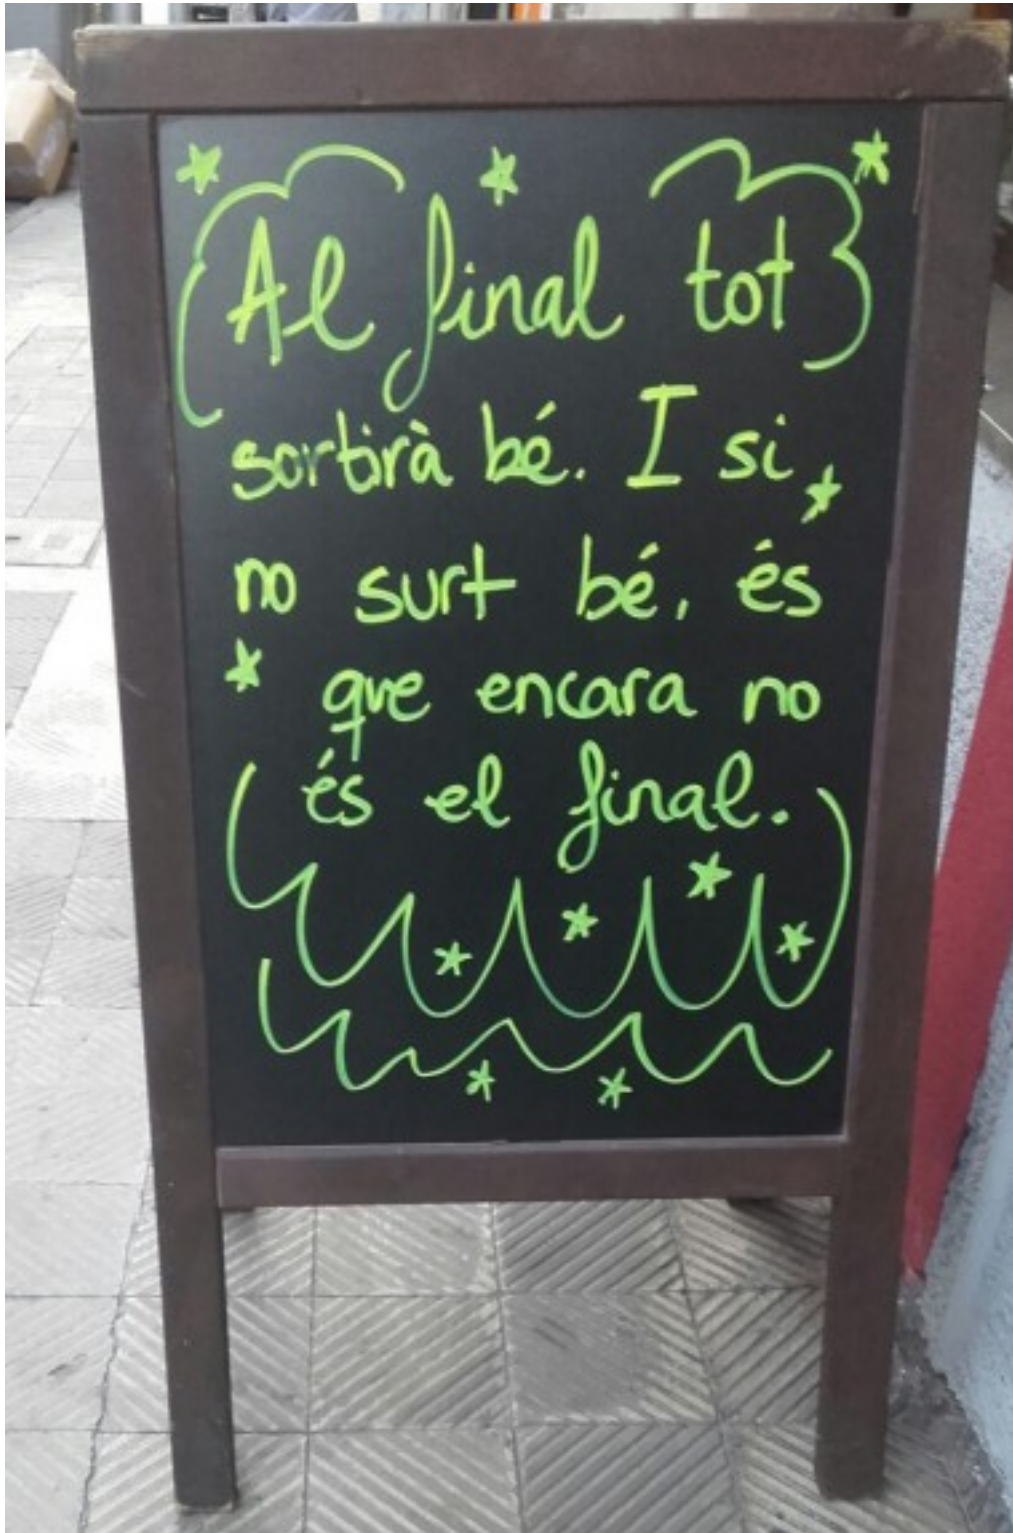 Al final tot
sortirà bé. I si
no surt bé, és
que encara no
és el final.